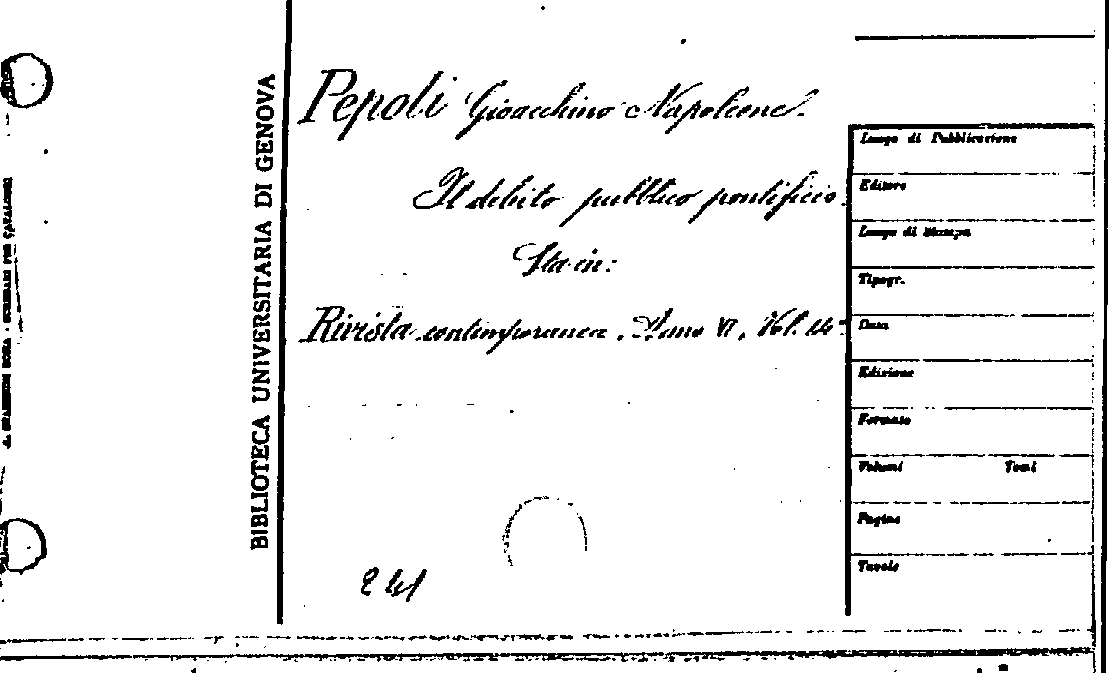 BIBLIOTECA UNIVERSITARIA DI GENOVA
Pepoli Gioacchino Napoleone.
Il debito pubblico pontificio.
Sta in:
Rivista contemporanea. Anno VI, Vol. 14º
241
Luogo di Pubblicazione
Editore
Luogo di Stampa
Tipogr.
Data
Edizione
Formato
Volumi Tomi
Pagine
Tavole